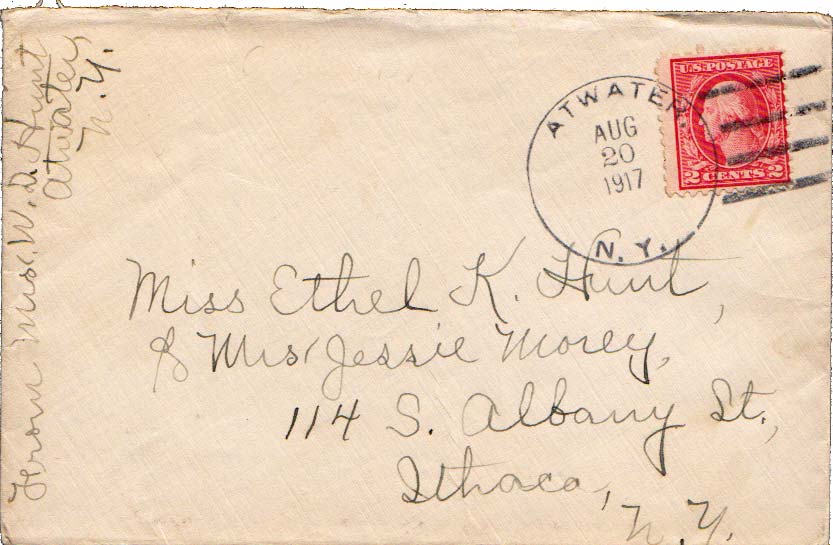 From Mrs. W. D. Hunt
Atwater,
N. Y.
ATWATER.
AUG
20
1917
N. Y.
U.S. POSTAGE
2 CENTS 2
Miss Ethel K. Hunt,
% Mrs Jessie Morey,
114 S. Albany St.,
Ithaca,
N. Y.